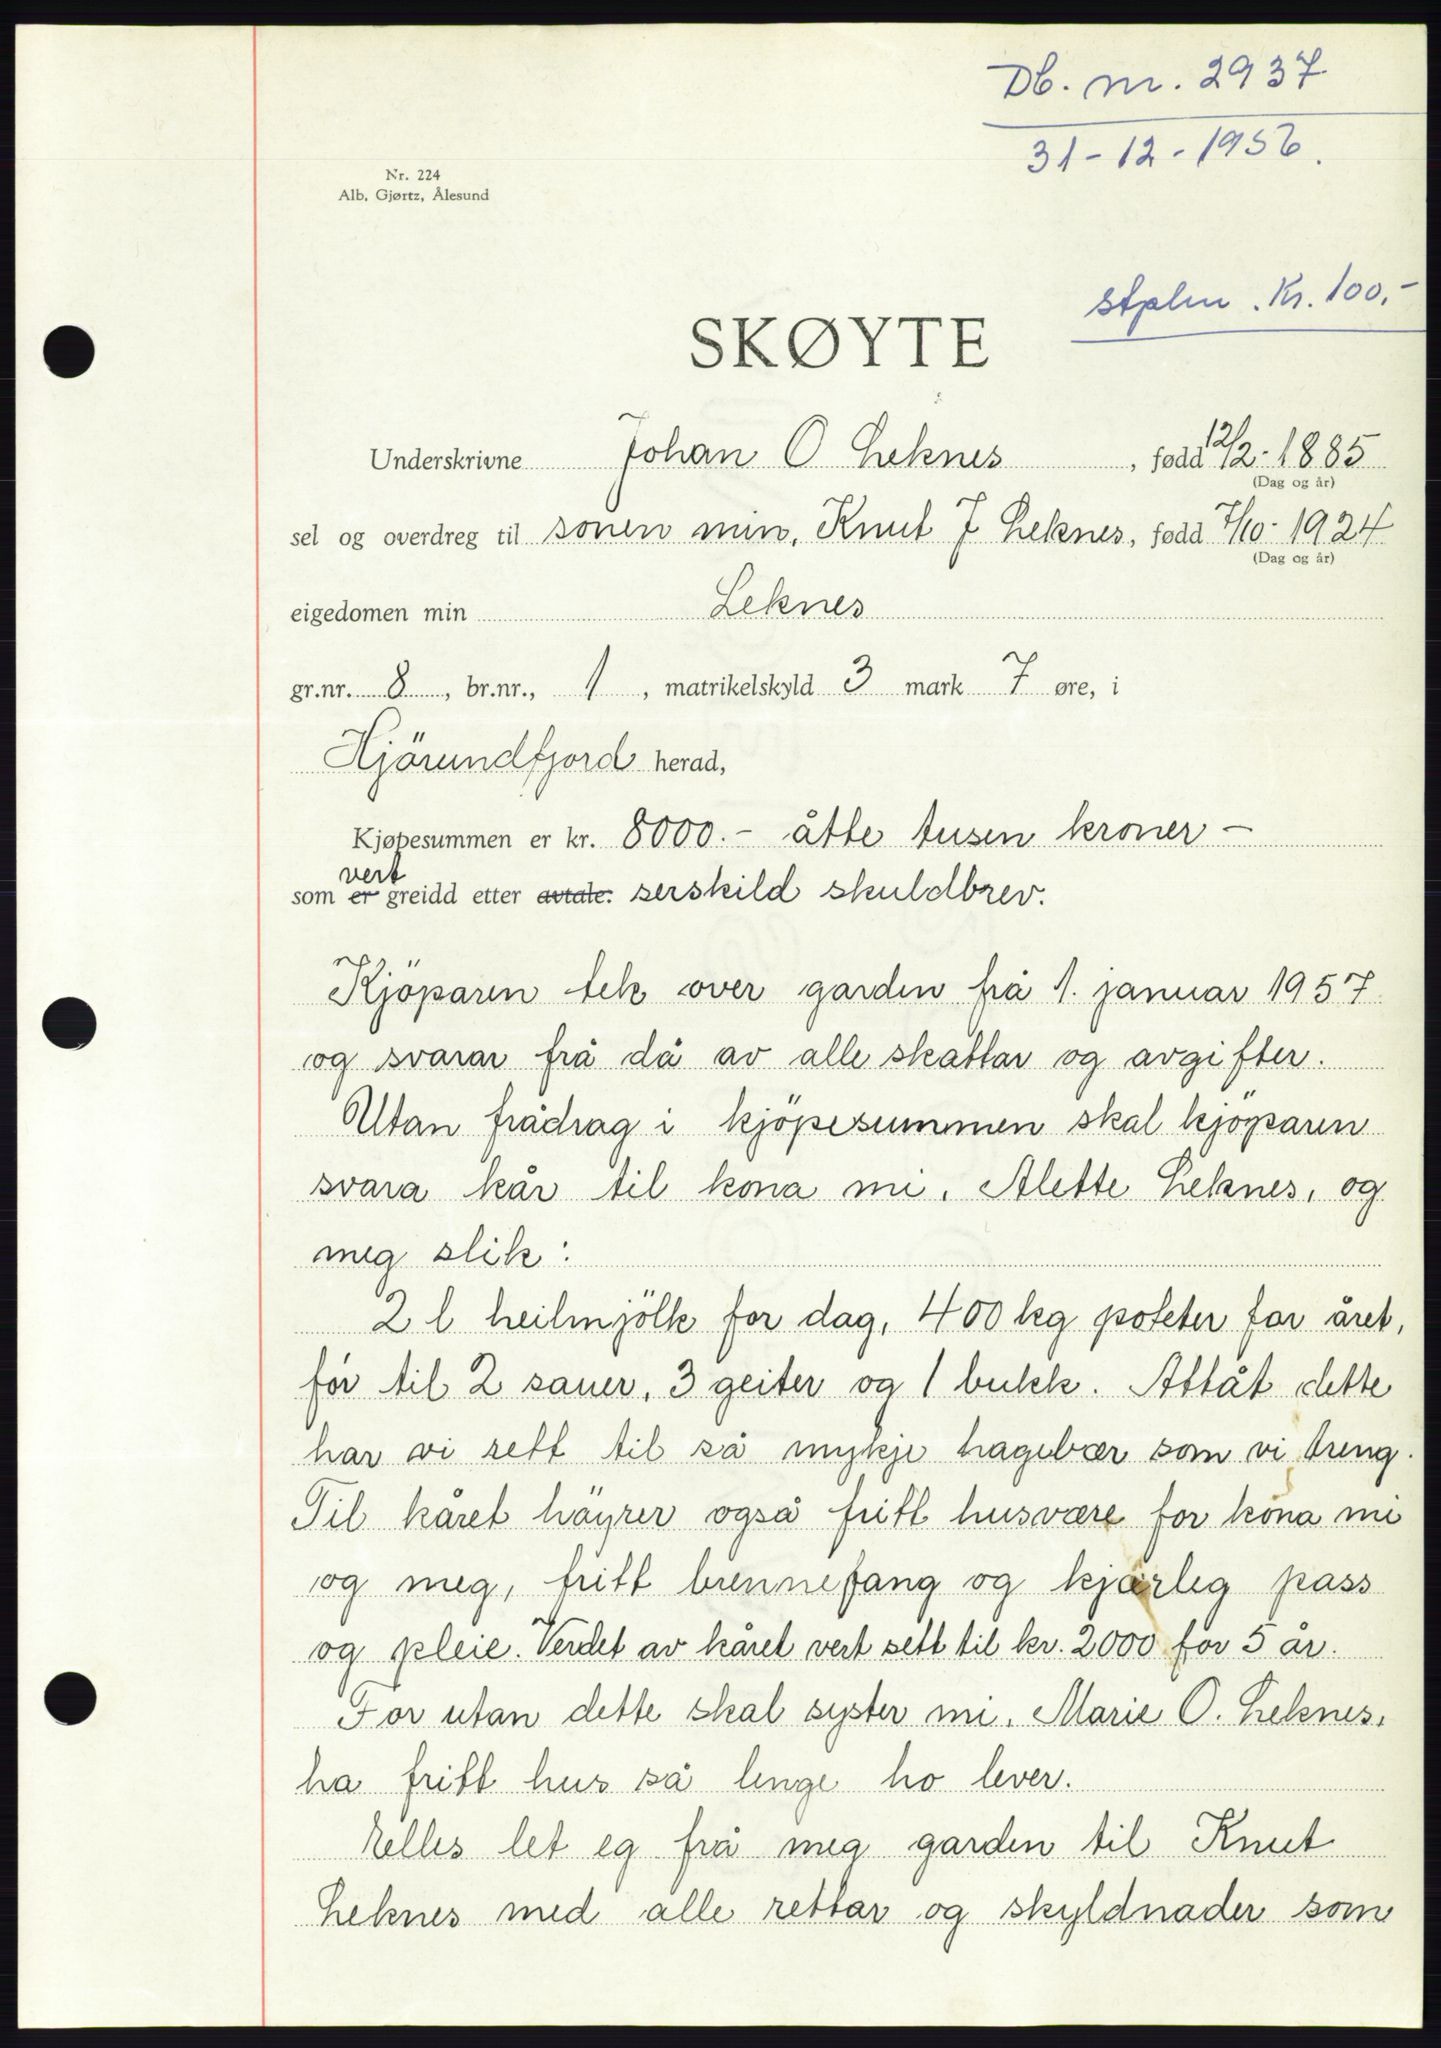 Db. nr. 2937
31-12-1956.
Nr. 224
Alb. Gjørtz, Ålesund
stplm. Kr. 100,-
SKØYTE
Underskrivne Johan O Leknes, fødd 12/2-1885
(Dag og år)
sel og overdreg til sonen min, Knut J Leknes, fødd 7/10-1924
(Dag og år)
eigedomen min Leknes
gr.nr. 8, br.nr., 1, matrikelskyld 3 mark 7 øre, i
Hjörundfjord herad,
Kjøpesummen er kr. 8000.- åtte tusen kroner -
vert
som er greidd etter avtale: serskild skuldbrev.
Kjöparen tek over garden frå 1. januar 1957
og svarar frå då av alle skattar og avgifter.
Utan frådrag i kjöpesummen skal kjöparen
svara kår til kona mi, Alette Leknes, og
meg slik:
2 l heilmjölk for dag, 400 kg poteter for året,
fór til 2 sauer, 3 geiter og 1 bukk. Attåt dette
har vi rett til så mykje hagebær som vi treng.
Til kåret höyrer også fritt husvære for kona mi
og meg, fritt brennefang og kjærleg pass
og pleie. Verdet av kåret vert sett til kr. 2000 for 5 år.
For utan dette skal syster mi, Marie O. Leknes,
ha fritt hus så lenge ho lever.
Elles let eg frå meg garden til Knut
Leknes med alle rettar og skyldnader som